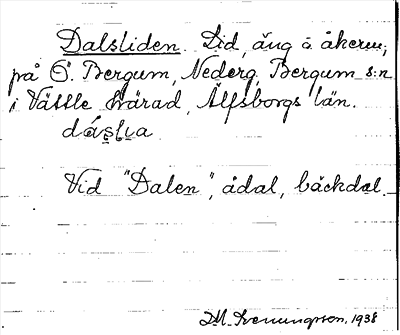 Dalsliden. Lid, äng o åkerm,
på Ö. Bergum, Nederg, Bergum s:n
i Vättle härad, Älfsborgs län.
dásli̥a
Vid "Dalen", ådal, bäckdal.
1938